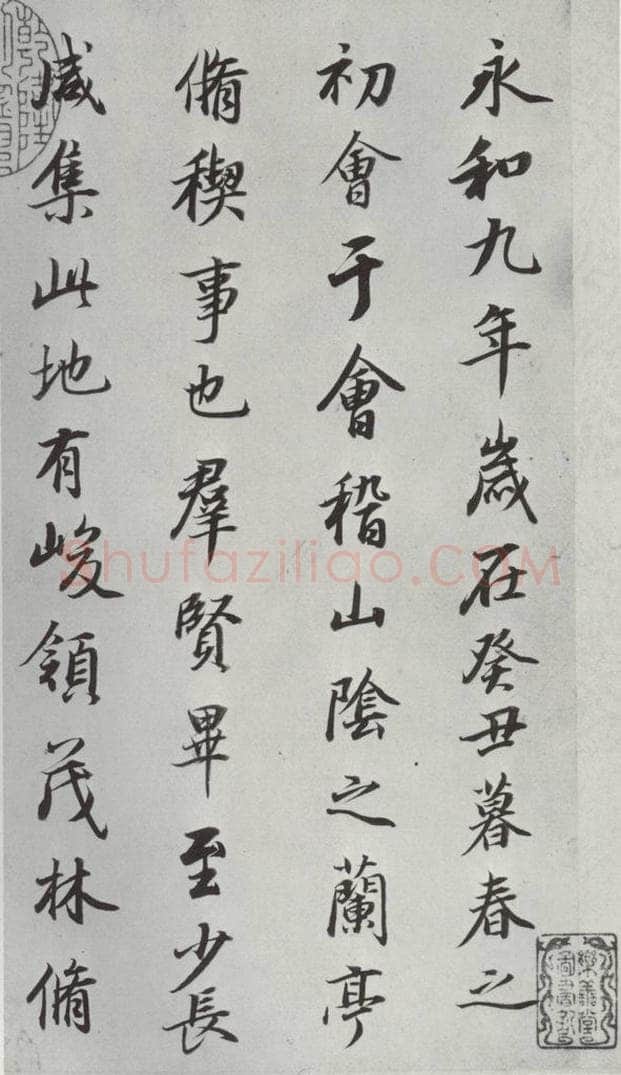 永和九年歲在癸丑暮春之
初會于會稽山陰之蘭亭
脩稧事也羣賢畢至少長
咸集此地有峻領茂林脩
Shufaziliao.COM